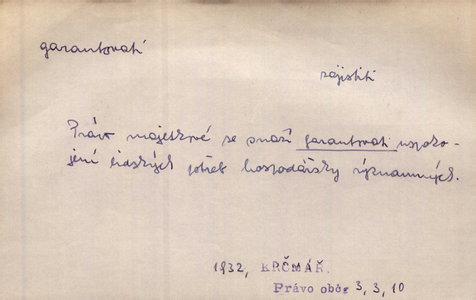 garantovati
zajistiti
Právo majetkové se snaží garantovati uspoko-
jení lidských potřeb hospodářsky významných.
1932, KRČMÁŘ.
Právo obč. 3, 3, 10